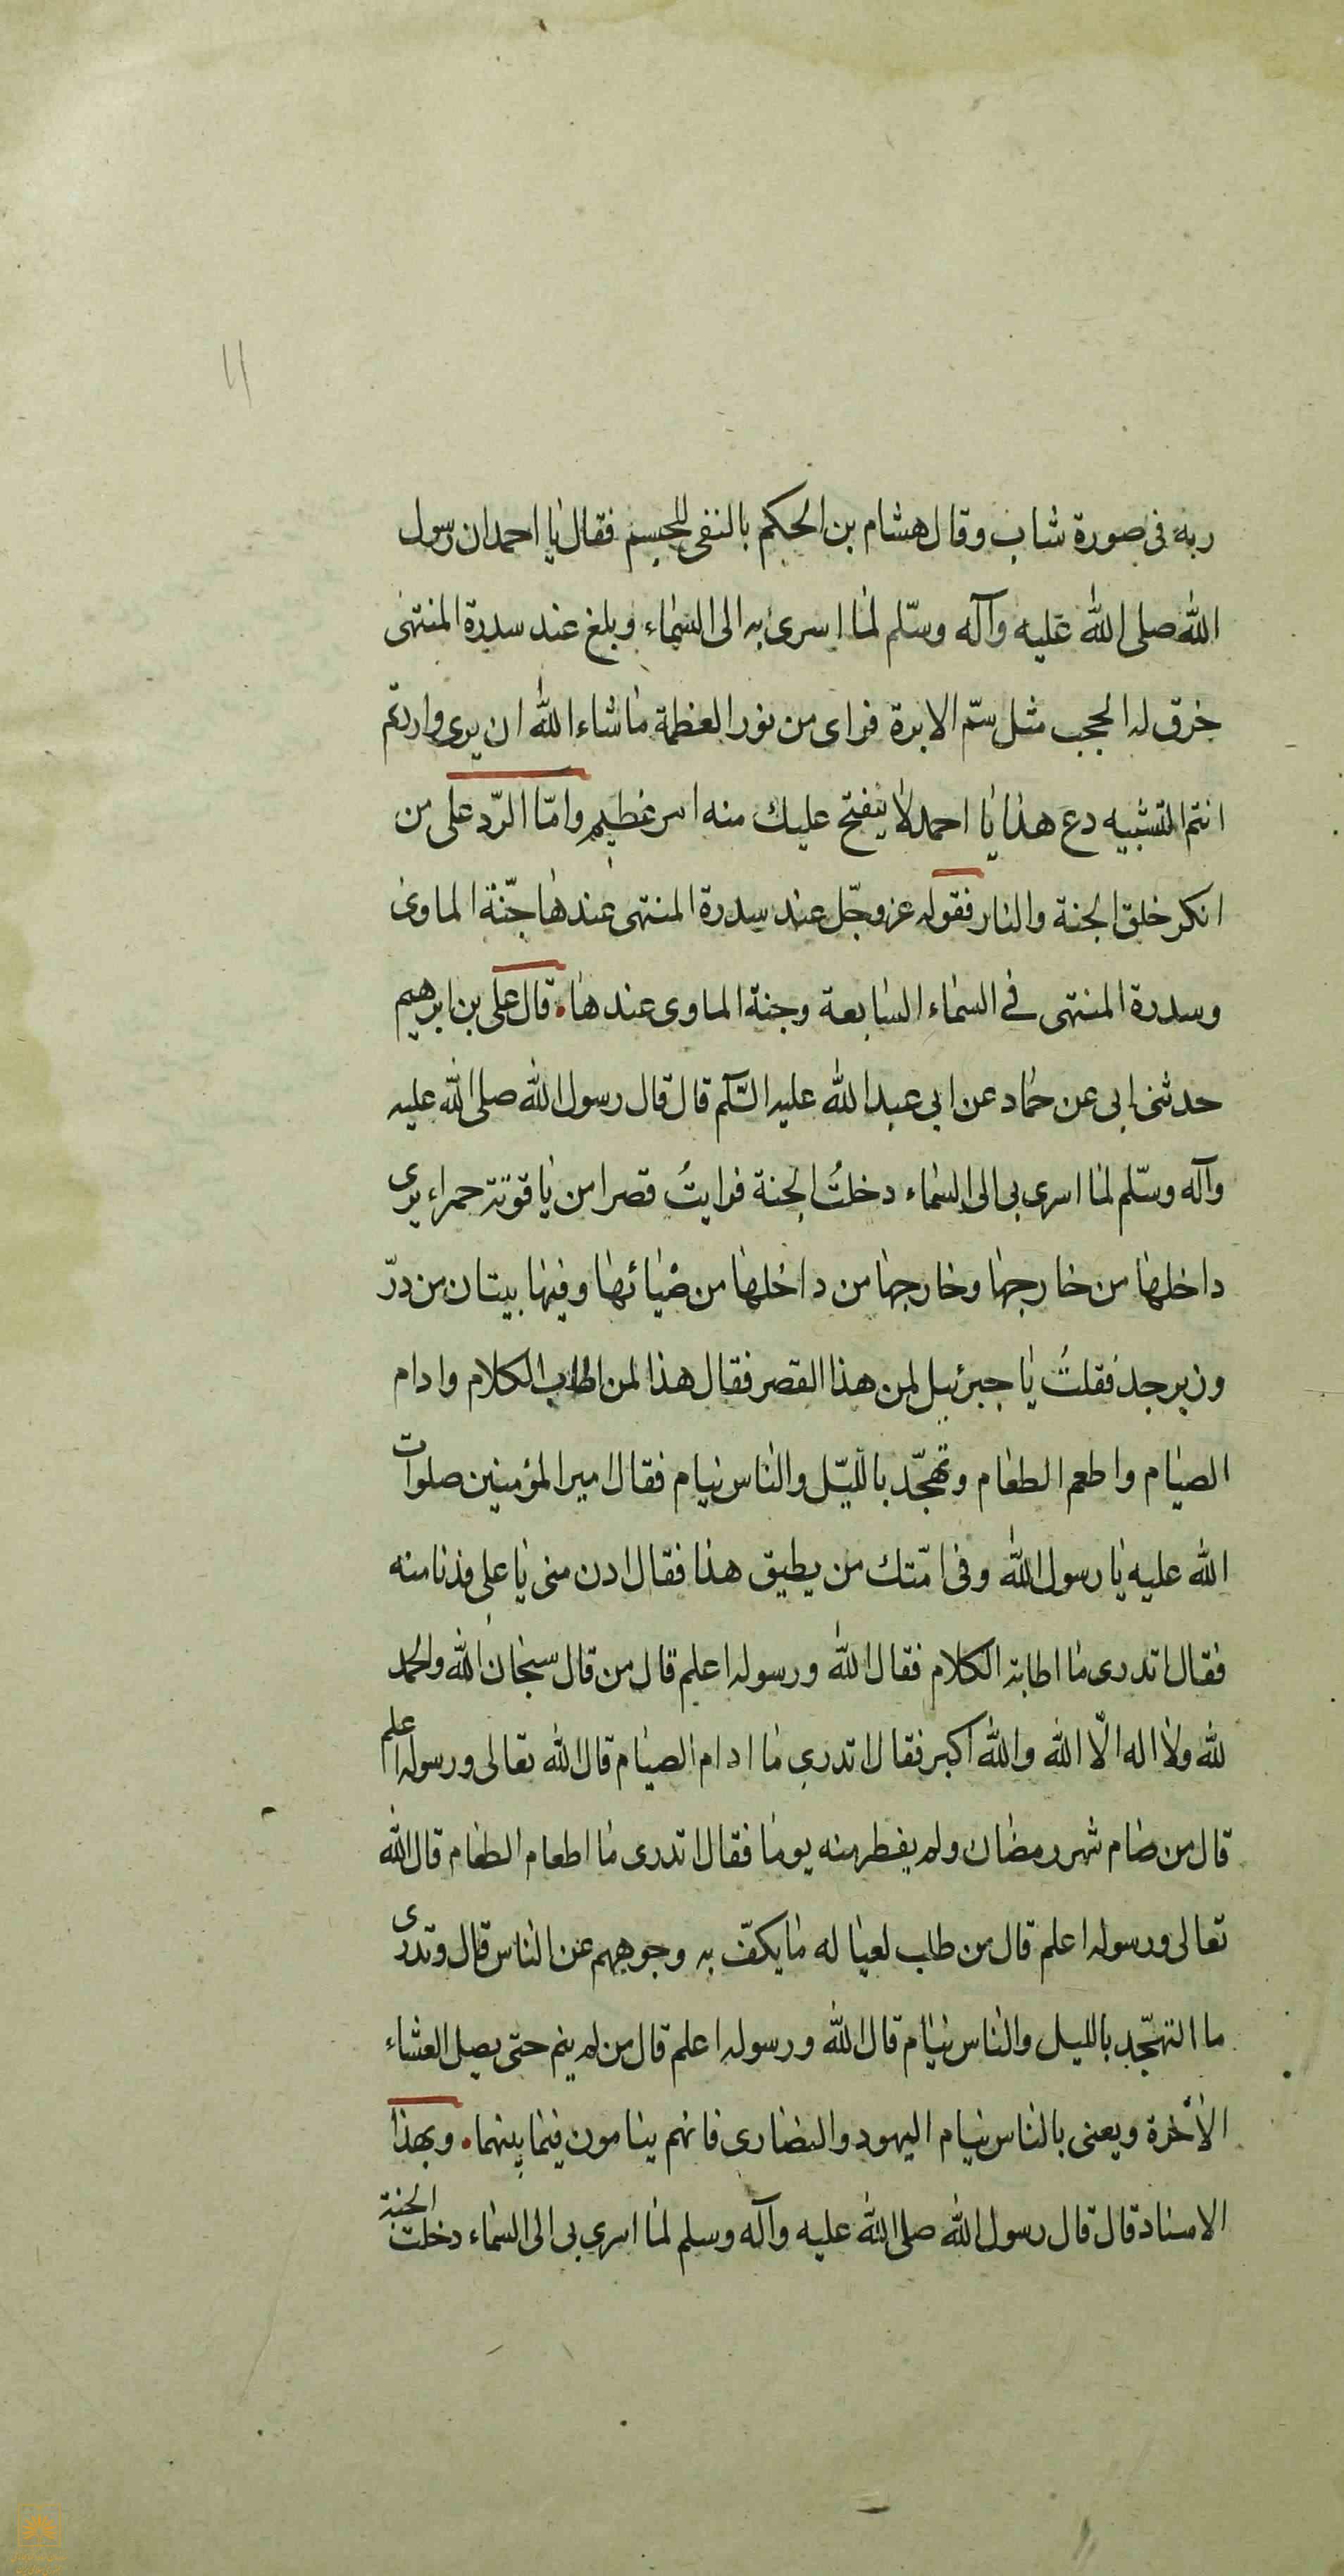 ١١
ربه فى صورة شاب وقال هشام بن الحكم بالنفى للجسم فقال يا احمد ان رسول
الله صلى الله عليه وآله وسلّم لما اسرى به الى السماء وبلغ عند سدرة المنتهى
خرق له الحجب مثل سمّ الابرة فراى من نور العظمة ما شاء الله ان يرى واردتم
انتم التشبيه دع هذا يا احمد لا ينفتح عليك منه امر عظيم وامّا الرّد على من
انكر خلق الجنة والنار فقوله عز وجّل عند سدرة المنتهى عندها جنّة الماوى
وسدرة المنتهى فى السماء السابعة وجنة الماوى عندها. قال على بن ابرهيم
حدثنى ابى عن حماد عن ابى عبد الله عليه السّلم قال قال رسول الله صلى الله عليه
وآله وسلّم لما اسرى بى الى السماء دخلتُ الجنة فرايتُ قصرا من ياقوتة حمراء يرى
داخلها من خارجها وخارجها من داخلها من ضيائها وفيها بيتان من درّ
وزبرجد فقلتُ يا جبرئيل لمن هذا القصر فقال هذا لمن اطاب الكلام وادام
الصيام واطعم الطعام وتهجّد بالليّل والناس نيام فقال امير المؤمنين صلوات
الله عليه يا رسول الله وفى امّتك من يطيق هذا فقال ادن منى يا على فدنا منه
فقال اتدرى ما اطابة الكلام فقال الله ورسوله اعلم قال من قال سبحان الله والحمد
لله ولا اله الّا الله والله اكبر فقال اتدرى ما ادام الصيام قال الله تعالى ورسوله اعلم
قال من صام شهر رمضان ولم يفطر منه يوما فقال اتدرى ما اطعام الطعام قال الله
تعالى ورسوله اعلم قال من طلب لعياله ما يكفّ به وجوههم عن الناس قال وتدرى
ما التهجّد بالليل والناس نيام قال الله ورسوله اعلم قال من لم ينم حتى يصل العشاء
الأخرة ويعنى بالناس نيام اليهود والنصارى فانهم ينامون فيما بينهما. وبهذا
الاسناد قال قال رسول الله صلى الله عليه وآله وسلم لما اسرى بى الى السماء دخلت الجنة